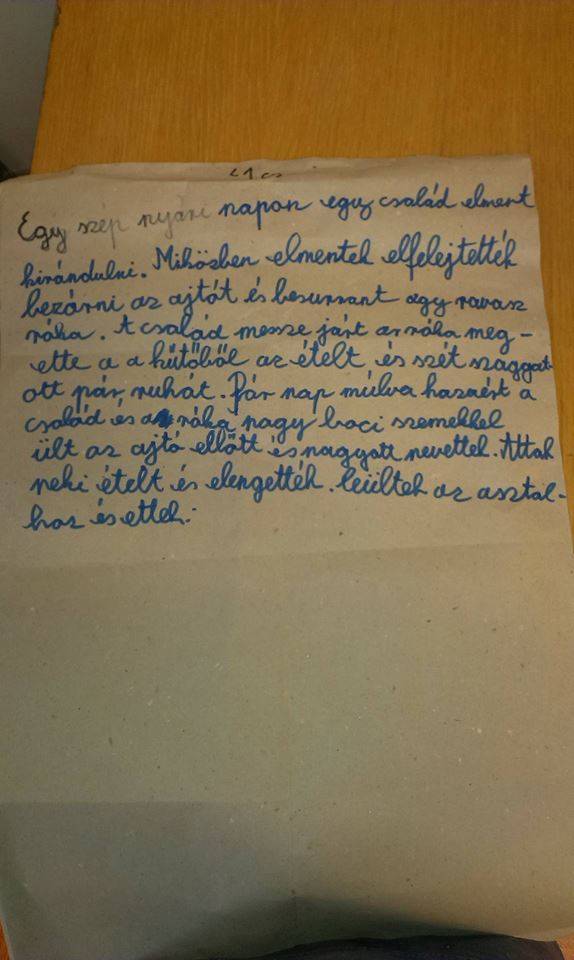 Egy szép nyári napon egy család elment
kirándulni. Miközben elmentek elfelejtették
bezárni az ajtót és besurrant agy ravasz
róka. A család messze járt a róka meg-
ette a a hűtőből az ételt és szét szaggat-
ott pár ruhát. Pár nap múlva hazaért a
család és a róka nagy boci szemekkel
ült az ajtó ellőtt és nagyott nevettek. Attak
neki ételt és elengették. leültek az asztal-
hoz és ettek.